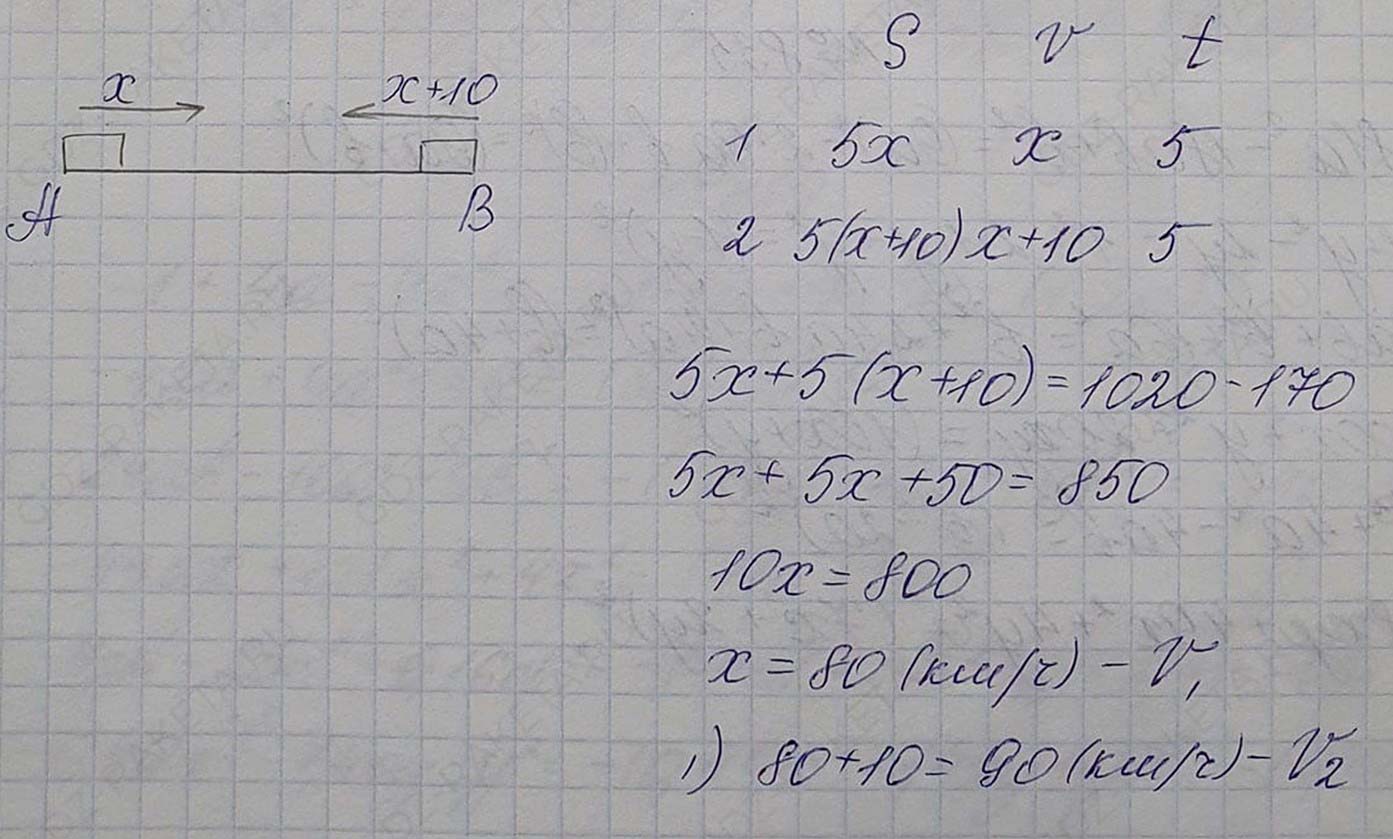 x x+10
A B
S v t
1 5x x 5
2 5(x+10) x+10 5
5x+5(x+10)=1020-170
5x+5x+50=850
10x=800
x=80(км/ч)-V₁
1) 80+10=90(км/ч)-V₂